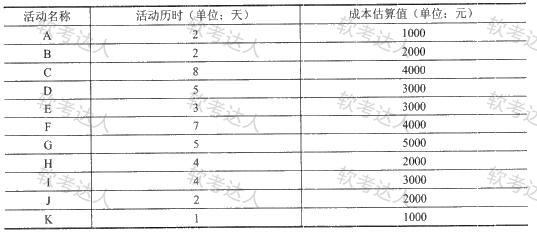 活动名称 活动历时（单位：天） 成本估算值（单位：元）
A 2 1000
B 2 2000
C 8 4000
D 5 3000
E 3 3000
F 7 4000
G 5 5000
H 4 2000
I 4 3000
J 2 2000
K 1 1000
软考达人 软考达人 软考达人
软考达人 软考达人 软考达人
软考达人 软考达人 软考达人